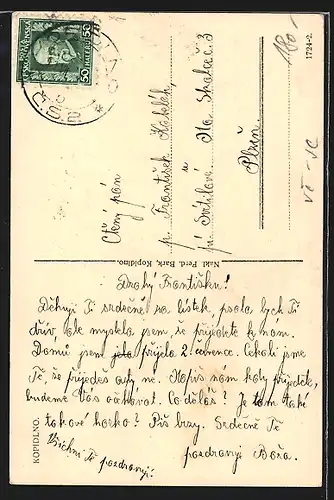 50 ČESKOSLOVENSKO 50
HALÉŘŮ
180-
1724-2.
Ctěný pán
p. František
u
Na Skalce č. 3
Plzeň
Nakl. Ferd. Bark, Kopidlno.
KOPIDLNO.
Drahý Františku!
Děkuji Ti srdečně za lístek, psala bych Ti
dřív, ale myslela jsem, že přijedete k nám.
Domů jsem jela přijela 2. července. Čekali jsme
Tě, že přijedeš a ty ne. Napiš nám kdy přijedeš,
budeme Vás očekávat. Co děláš? Je tam také
takové horko? Piš brzy. Srdečně Tě
pozdravuji Boža.
Všichni Tě pozdravují.